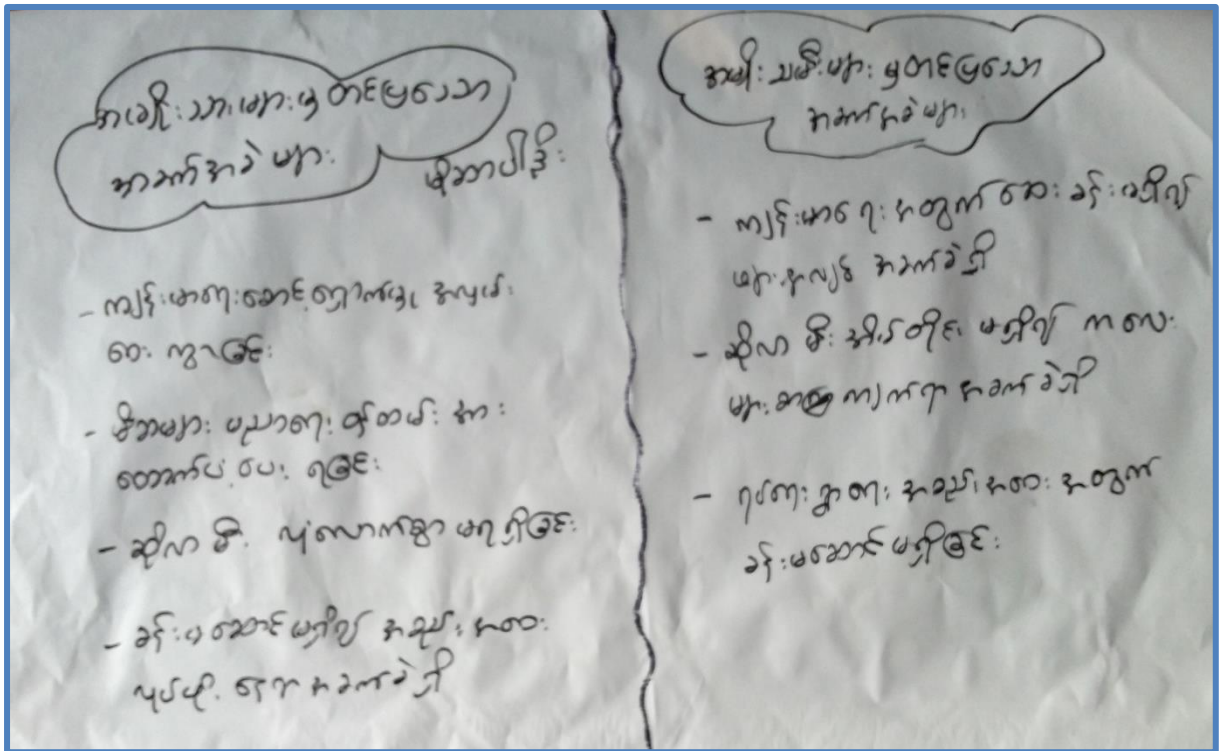 အမျိုးသားများမှတင်ပြသော
အခက်အခဲများ
ကျန်းမာရေးစောင့်ရှောက်မှု အလှမ်း
ဝေးကွာခြင်း
- မိဘများ ပညာရေးဝန်ထမ်းအား
ထောက်ပံ့ပေးရခြင်း
- ဆိုလာမီး လုံလောက်စွာ မရရှိခြင်း
- ခန်းမဆောင်မရှိ၍ အစည်းအဝေး
လုပ်ဖို့ နေရာအခက်ခဲရှိ
အမျိုးသမီးများမှတင်ပြသော
အခက်အခဲများ
- ကျန်းမာရေးအတွက် ဆေးခန်းမရှိ၍
များ အခက်ခဲရှိ
- ဆိုလာမီး အိမ်တိုင်းမရှိ၍ ကလေး
များစာကျက်ရာအခက်ခဲရှိ
- ရပ်ရေးရွာရေး အစည်းအဝေးအတွက်
ခန်းမဆောင်မရှိခြင်း